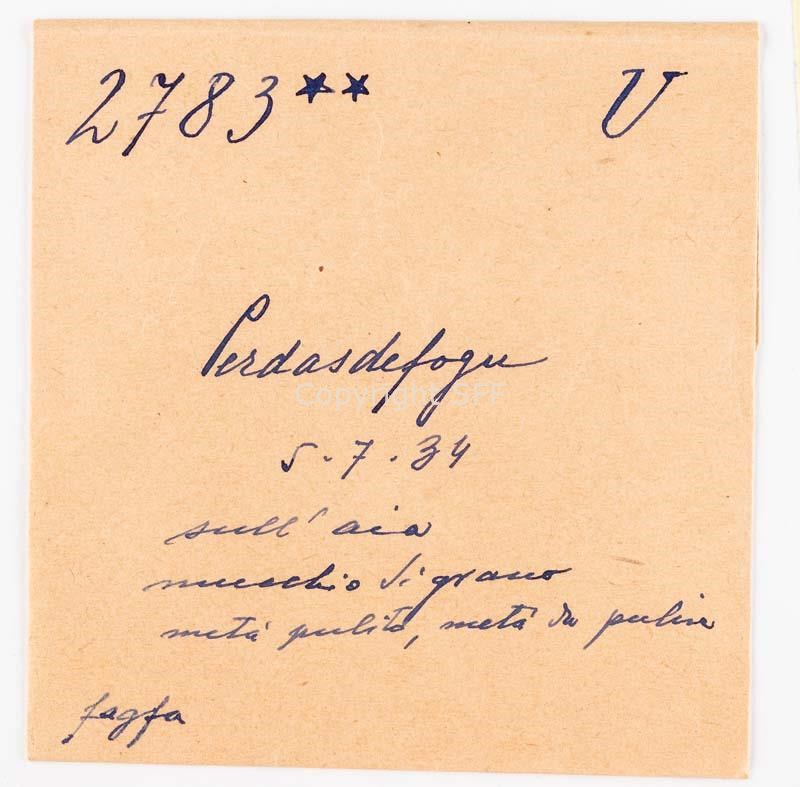 2783** U
Perdasdefogu
Copyright SFF
5.7.34
sull'aia
mucchio di grano
metà pulito, metà da pulire
fagfa